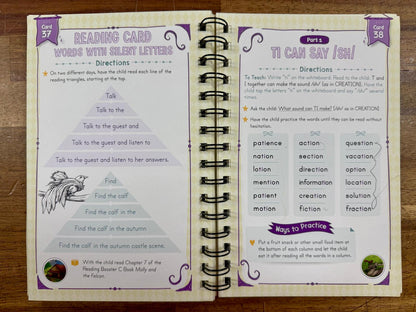 Card
37
READING CARD
WORDS WITH SILENT LETTERS
Directions
On two different days, have the child read each line of
the reading triangles, starting at the top.
Talk
Talk to the
Talk to the guest and
Talk to the guest and listen to
Talk to the guest and listen to her answers.
Find
Find the calf
Find the calf in the
Find the calf in the autumn
Find the calf in the autumn castle scene.
With the child read Chapter 7 of the
Reading Booster C Book Molly and
the Falcon.
Card
38
Part 1
TI CAN SAY /SH/
Directions
To Teach: Write "ti" on the whiteboard. Read to the child: T and
I together can make the sound /sh/ (as in CREATION). Have the
child tap the letters "ti" on the whiteboard and say "/sh/" several
times.
Ask the child: What sound can TI make? [/sh/ as in CREATION]
Have the child practice the words until they can be read without
hesitation.
patience
nation
lotion
mention
patient
motion
action
section
direction
information
creation
fiction
question
vacation
option
location
solution
fraction
Ways to Practice
Put a fruit snack or other small food item at
the bottom of each column and let the child
eat it after reading all the words in a column.